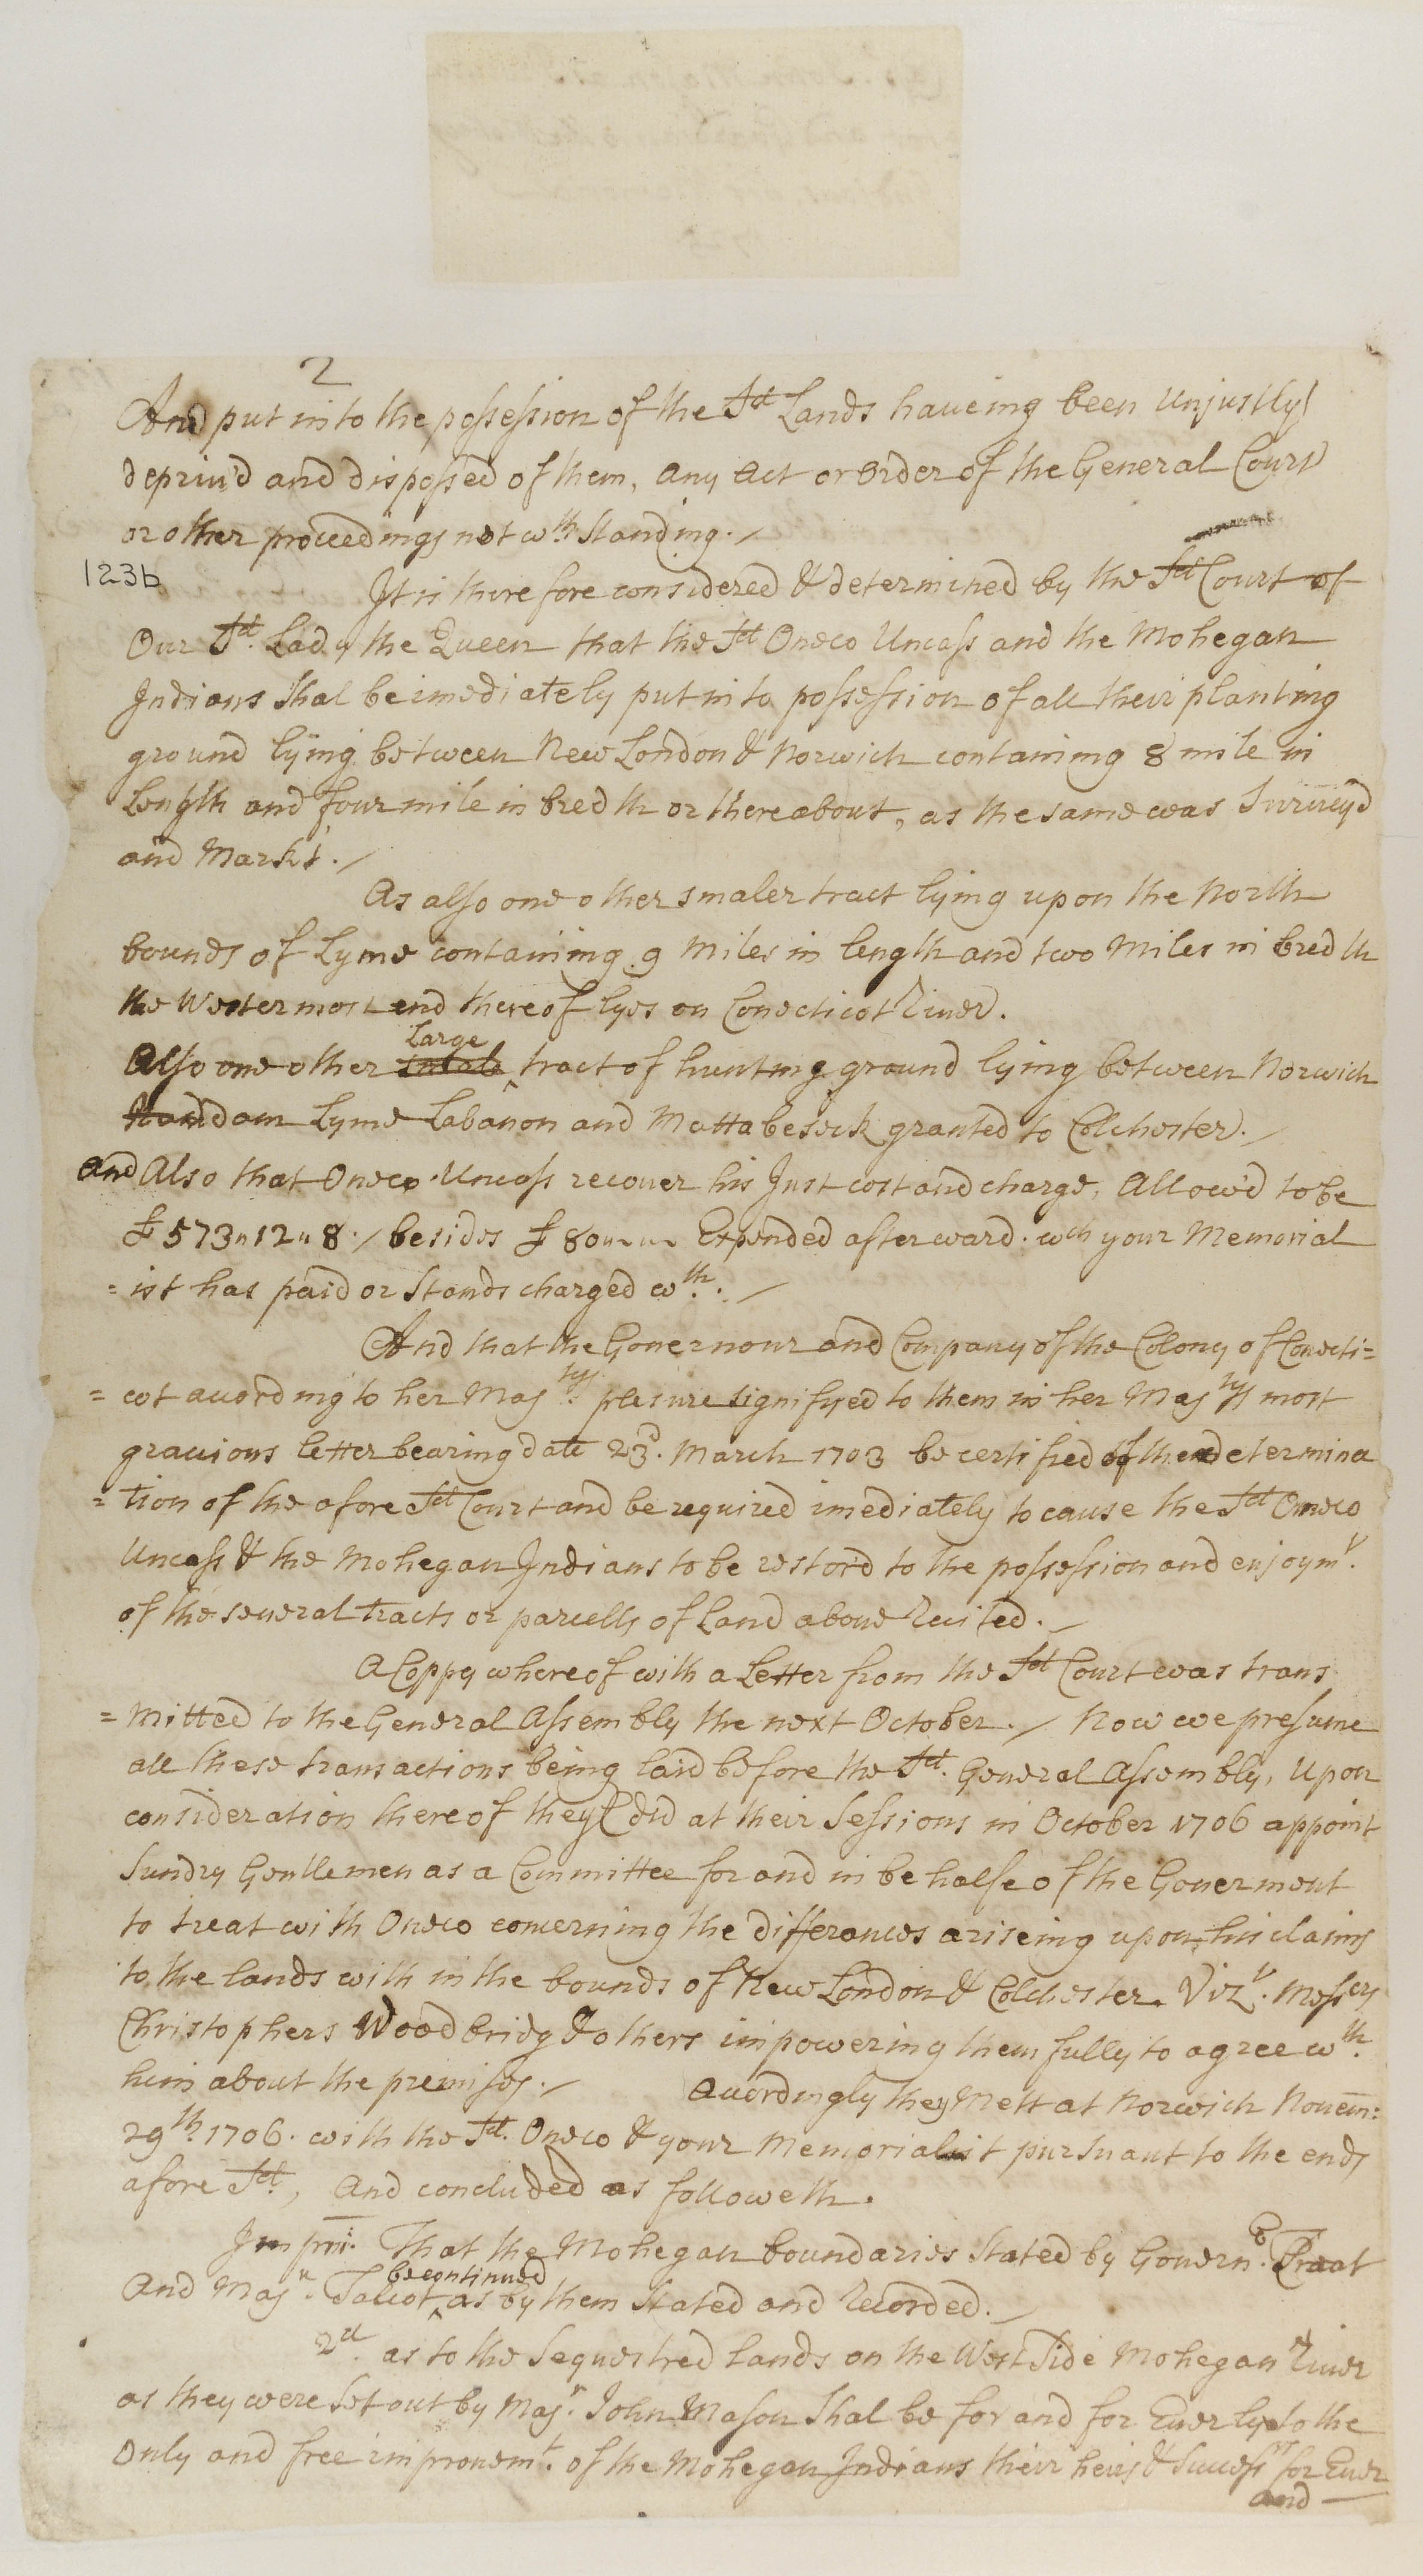 2
And put into the possession of the sd Lands haveing been unjustly
depriu'd and dispossed of them, any act or order of the General Court
or other proceedings not wth standing. /
123b
It is therefore considered & determined by the sd Court of
Our sd. Lady the Queen that the sd Oneco Uncass and the Mohegan
Indians shal be imediately put into possession of all their planting
ground lying between New London & Norwich containing 8 mile in
Length and four mile in bredth or thereabout, as the same was Surueyd
and Markt. /
As also one other smaler tract lying upon the North
bounds of Lyme containing 9 Miles in length and two Miles in bredth
the Westermost end thereof lyes on Conecticot River.
Large
Also one other ‸ tract of hunting ground lying between Norwich
Haddam Lyme Labanon and Mattabeseck granted to Colchester. /
and Also that Oneco Uncass recouer his Just cost and charge, Allow'd to be
£573 " 12 " 8 . / besides £80 " ~ " ~ Expended afterward. wch your Memorial
= ist has paid or Stands charged wth. /
And that the Gouernour and Company of the Colony of Conecti=
= cot acording to her Majtys. plesure signifyed to them in her Majtys most
gracious letter bearing date 23d. March 1703 be certified of the determina
= tion of the afore sd Court and be required imediately to cause the sd Oneco
Uncass & the Mohegan Indians to be restord to the possession and enjoymt.
of the seueral tracts or parcells of Land aboue Recited. /
A Coppy whereof with a Letter from the sd Court was trans
= mitted to the General Assembly the next October. / Now we presume
all these transactions being laid before the sd. General Assembly, Upon
consideration thereof they did at their Sessions in October 1706 appoint
Sundry Gentlemen as a Committee for and in behalfe of the Gouerment
to treat with Oneco concerning the differances ariseing upon his claims
to the lands with in the bounds of New London & Colchester. Vizt. Messers
Christophers Woodbridg & others impowering them fully to agree wth.
him about the premises. / Acordingly they Mett at Norwich Nouem:
29th. 1706. with the sd. Oneco & your Memorialist pursuant to the ends
afore sd., And concluded as followeth.
Impri: That the Mohegan boundaries stated by Governr. Treat
be continued
And Majr. Talcot ‸ as by them Stated and Recorded. /
2d. as to the Sequestred lands on the West Side Mohegan River
as they were Set out by Majr. John Mason Shal be for and for Euer ly to the
Only and free improuemt. of the Mohegan Indians their heirs & Successrs for Euer
and